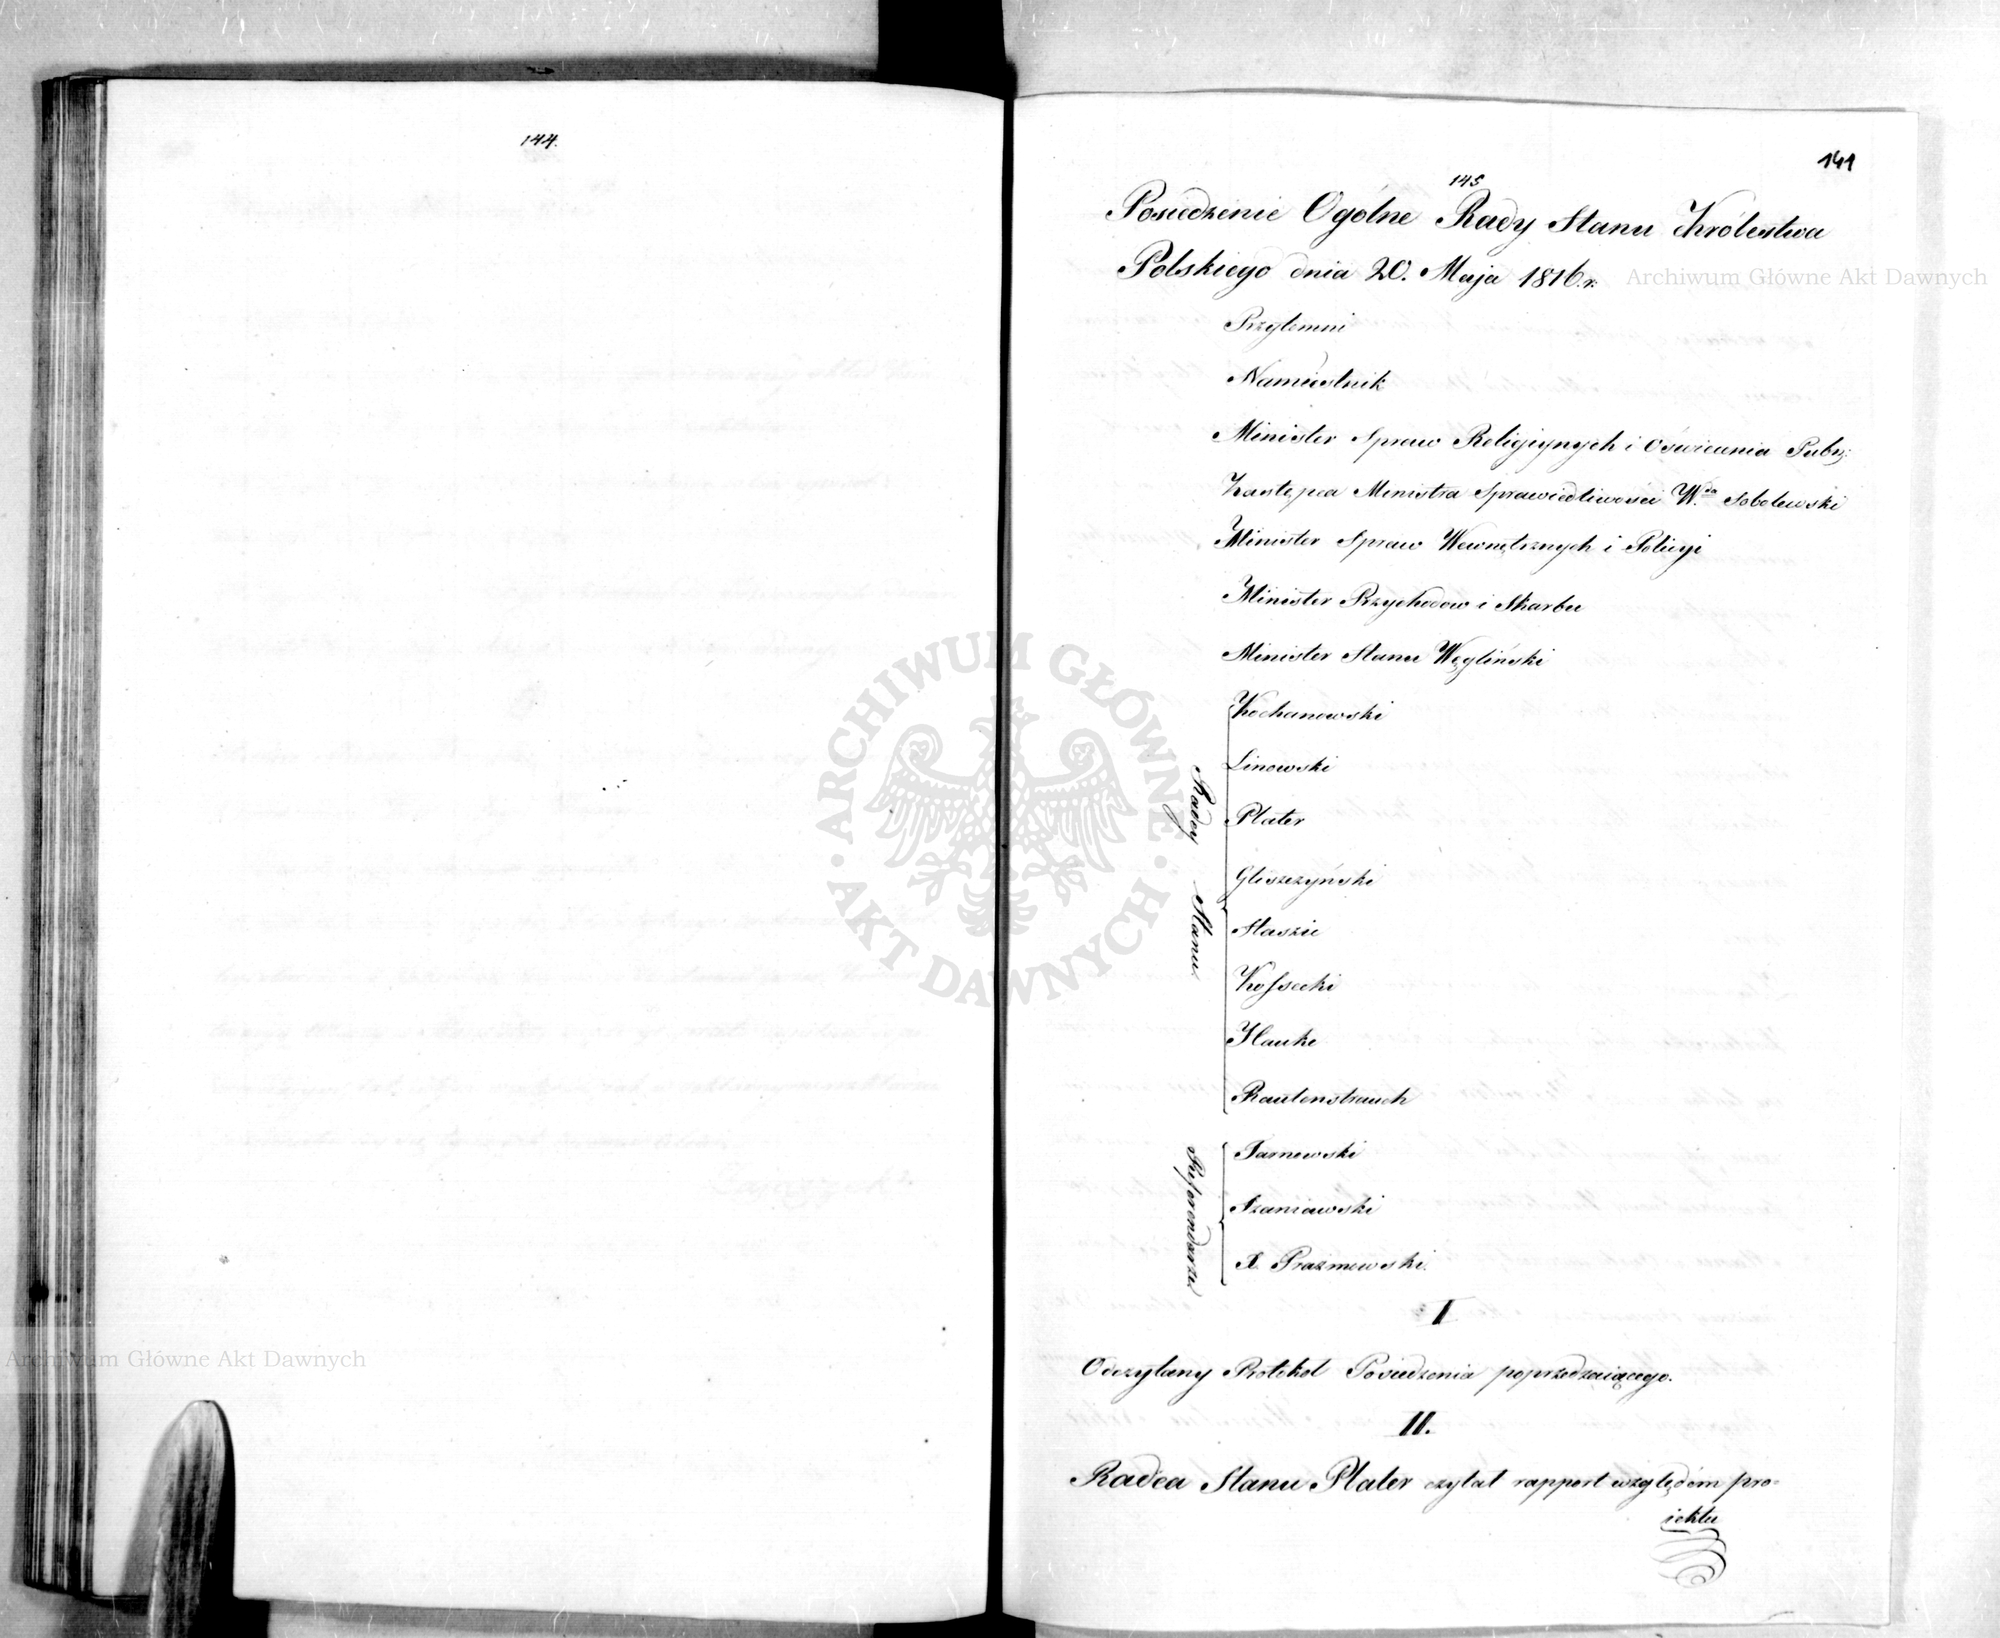 144.
141
145
Posiedzenie Ogólne Rady Stanu Królestwa
Polskiego dnia 20. Maja 1816.r.
Przytomni
Namiestnik
Minister Spraw Religiynych i Oświecenia Publ:
Zastępca Ministra Sprawiedliwości W.da Sobolewski
Minister Spraw Wewnętrznych i Policyi
Minister Przychodow i Skarbu
Minister Stanu Węgliński
Radcy Stanu
Kochanowski
Linowski
Plater
Gliszczyński
Staszic
Kossecki
Hauke
Rautenstrauch
Referendarze
Tarnowski
Szaniawski
X. Prażmowski.
I
Odczytany Protokol Posiedzenia poprzedzaiącego.
II.
Radca Stanu Plater czytał rapport względem pro=
iektu
Archiwum Główne Akt Dawnych
ARCHIWUM GŁÓWNE · AKT DAWNYCH ·
Archiwum Główne Akt Dawnych